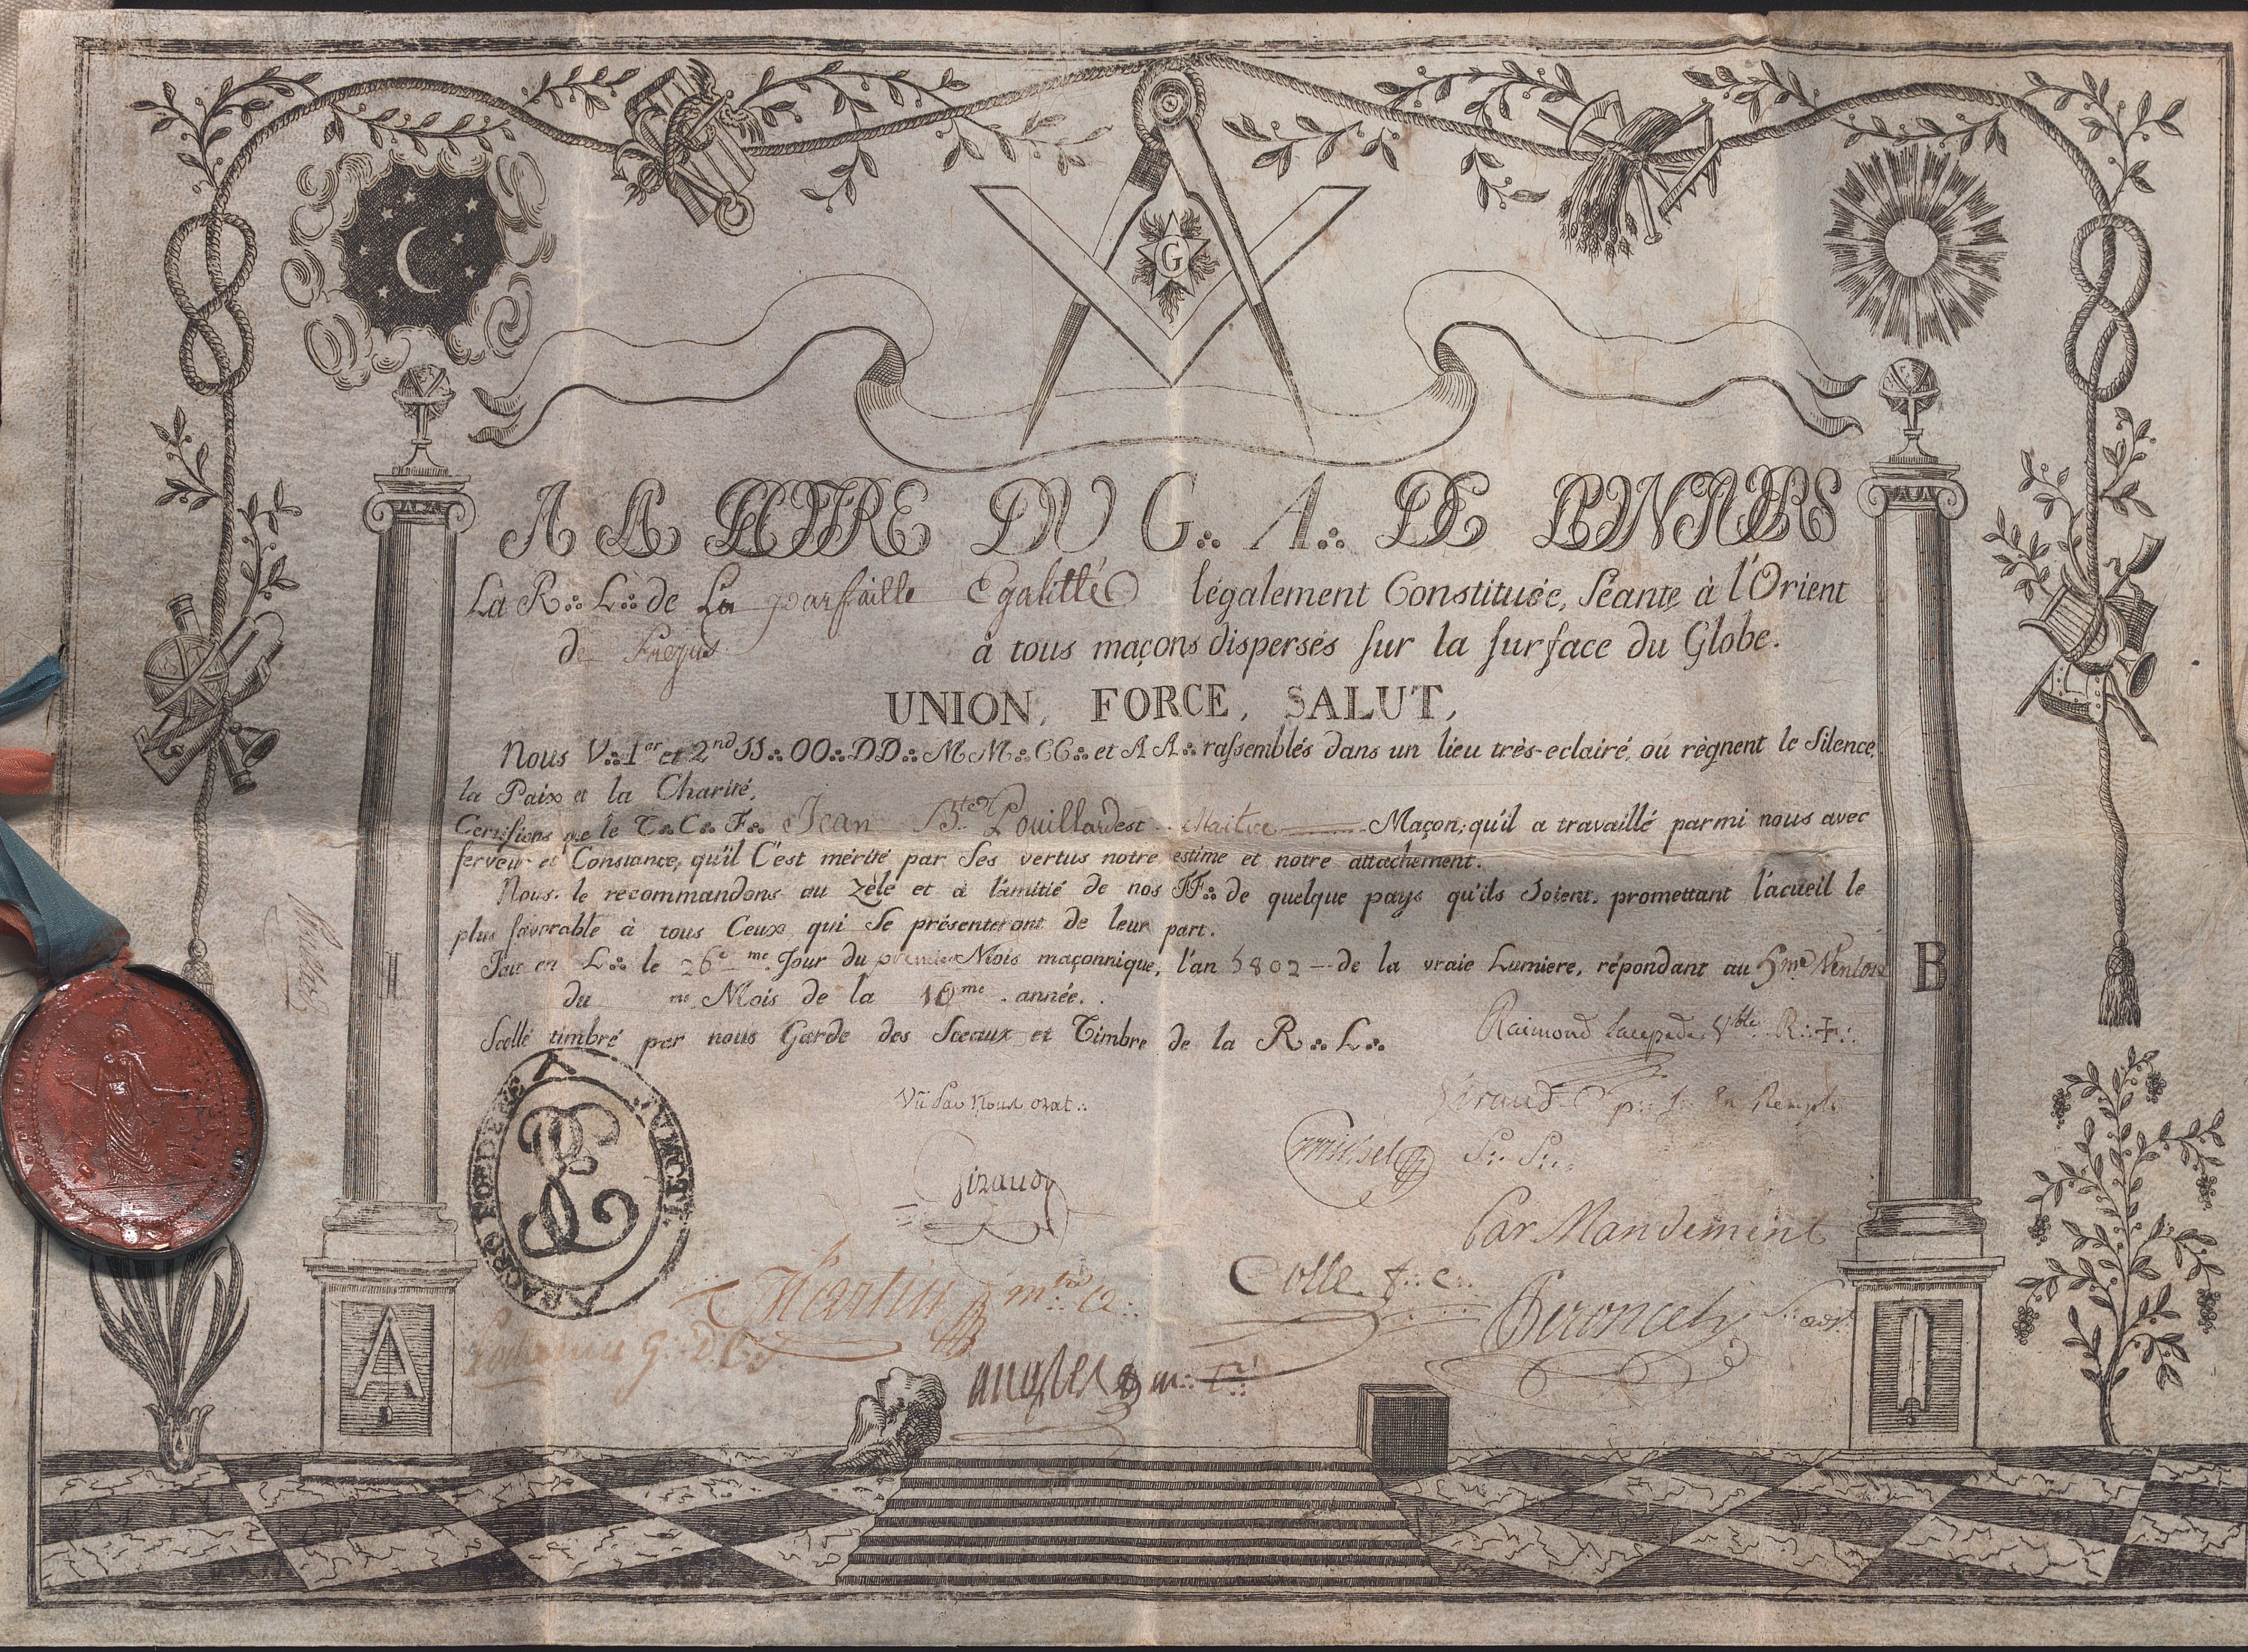 G
A LA GLOIRE DU G∴ A∴ DE L'UNIVERS
La R∴ L∴ de La parfaitte Egalitté légalement Constituée, Séante à l'Orient
de Frejus à tous maçons dispersés sur la surface du Globe.
UNION, FORCE, SALUT,
Nous V∴ 1er et 2nd SS∴ OO∴ DD∴ MM∴ CC∴ et AA∴ rassemblés dans un lieu très-eclairé, où règnent le Silence,
la Paix et la Charité,
Certifions que le T∴ C∴ F∴ Jean Bte Pouillard est Maitre Maçon; qu'il a travaillé parmi nous avec
ferveur et Constance, qu'il C'est mérité par Ses vertus notre estime et notre attachement.
Nous le recommandons au zèle et à l'amitié de nos FF∴ de quelque pays qu'ils Soient, promettant l'acueil le
plus favorable à tous Ceux qui Se présenteront de leur part.
Fait en L∴ le 26e me Jour du premier Mois maçonnique, l'an 5802 de la vraie Lumiere, répondant au 5me Ventose
du me Mois de la 10me année.
Scellé timbré par nous Garde des Sceaux et Timbre de la R∴ L∴
Raimond Lacepede Vble R∴ +∴
Vu Par Nous orat∴
Giraud
michel S∴ S∴
Par Mandement
Martin m∴ a∴
Colle f∴ c∴
Peroncely S∴
J
B
A